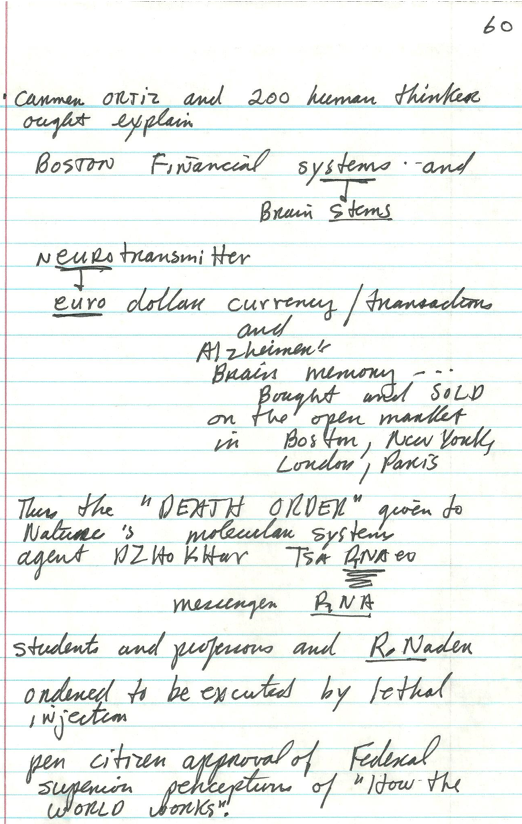 60
Carmen ORTIZ and 200 human thinker
ought explain
BOSTON Financial systems -- and
Brain stems
NEUROtransmitter
euro dollar currency / transactions
and
Alzheimer's
Brain memory ---
Bought and SOLD
on the open market
in Boston, New York,
London, Paris
Thus the "DEATH ORDER" given to
Nature's molecular system
agent DZHOKHar TSA RNAev
messenger RNA
students and professors and R. Nader
ordered to be executed by lethal
injection
per citizen approval of Federal
superior perceptions of "How the
WORLD WORKS".